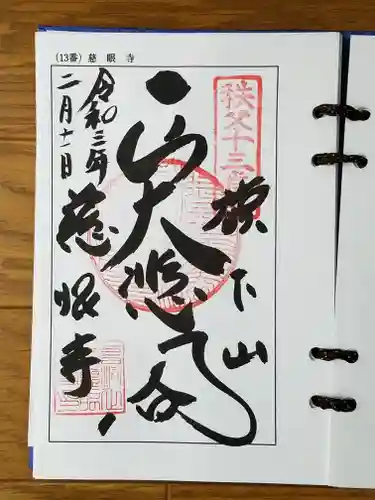 (13番) 慈眼寺
秩父十三番
旗下山
大悲殿
令和三年
二月十一日
慈眼寺